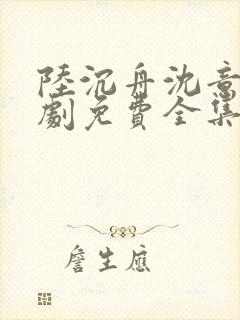 陸沉舟沈意
劇免費全集
詹生應